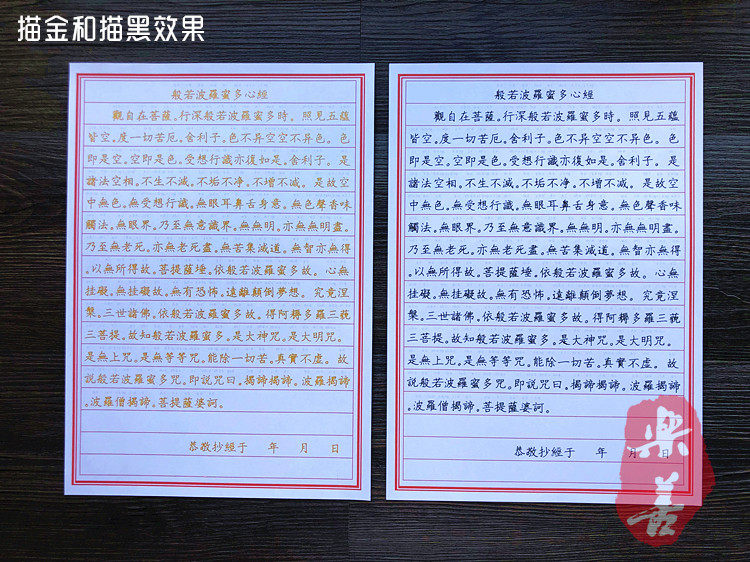 描金和描黑效果
般若波羅蜜多心經
觀自在菩薩。行深般若波羅蜜多時。照見五蘊
皆空。度一切苦厄。舍利子。色不异空空不异色。色
即是空。空即是色。受想行識亦復如是。舍利子。是
諸法空相。不生不滅。不垢不净。不增不减。是故空
中無色。無受想行識。無眼耳鼻舌身意。無色聲香味
觸法。無眼界。乃至無意識界。無無明。亦無無明盡。
乃至無老死。亦無老死盡。無苦集滅道。無智亦無得
。以無所得故。菩提薩埵。依般若波羅蜜多故。心無
挂礙。無挂礙故。無有恐怖。遠離顛倒夢想。究竟涅
槃。三世諸佛。依般若波羅蜜多故。得阿耨多羅三藐
三菩提。故知般若波羅蜜多。是大神咒。是大明咒。
是無上咒。是無等等咒。能除一切苦。真實不虛。故
説般若波羅蜜多咒。即説咒曰。揭諦揭諦。波羅揭諦
。波羅僧揭諦。菩提薩婆訶。
恭敬抄經于 年 月 日
般若波羅蜜多心經
觀自在菩薩。行深般若波羅蜜多時。照見五蘊
皆空。度一切苦厄。舍利子。色不异空空不异色。色
即是空。空即是色。受想行識亦復如是。舍利子。是
諸法空相。不生不滅。不垢不净。不增不减。是故空
中無色。無受想行識。無眼耳鼻舌身意。無色聲香味
觸法。無眼界。乃至無意識界。無無明。亦無無明盡。
乃至無老死。亦無老死盡。無苦集滅道。無智亦無得
。以無所得故。菩提薩埵。依般若波羅蜜多故。心無
挂礙。無挂礙故。無有恐怖。遠離顛倒夢想。究竟涅
槃。三世諸佛。依般若波羅蜜多故。得阿耨多羅三藐
三菩提。故知般若波羅蜜多。是大神咒。是大明咒。
是無上咒。是無等等咒。能除一切苦。真實不虛。故
説般若波羅蜜多咒。即説咒曰。揭諦揭諦。波羅揭諦
。波羅僧揭諦。菩提薩婆訶。
恭敬抄經于 年 月 日
樂善